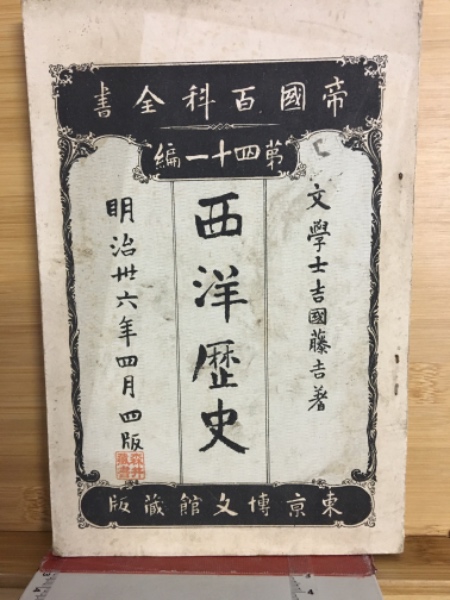 帝國百科全書
第四十一編
文學士吉國藤吉著
西洋歷史
明治卅六年四月四版
東京博文館藏版